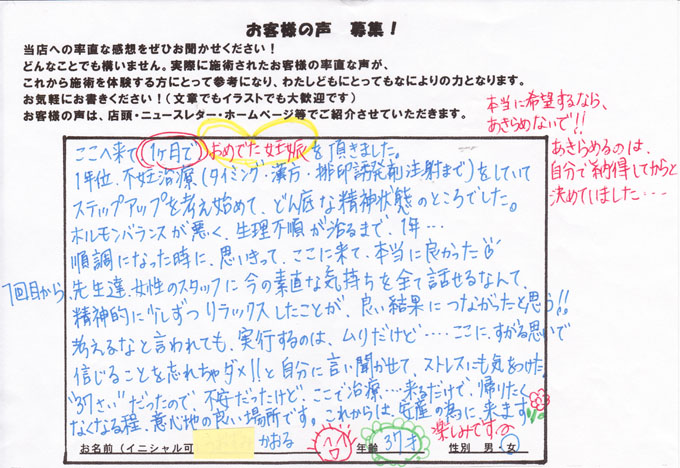 お客様の声 募集!
当店への率直な感想をぜひお聞かせください!
どんなことでも構いません。実際に施術されたお客様の率直な声が、
これから施術を体験する方にとって参考になり、わたしどもにとってもなによりの力となります。
お気軽にお書きください!(文章でもイラストでも大歓迎です)
お客様の声は、店頭・ニュースレター・ホームページ等でご紹介させていただきます。
本当に希望するなら、
あきらめないで!!
あきらめるのは、
自分で納得してからと
決めていました・・・
ここへ来て1ヶ月でおめでた妊娠を頂きました。
1年位、不妊治療(タイミング・漢方・排卵誘発剤注射まで)をしていて
ステップアップを考え始めて、どん底な精神状態のところでした。
ホルモンバランスが悪く、生理不順が治るまで、1年…
順調になった時に、思いきって、ここに来て、本当に良かった
1回目から、先生達、女性のスタッフに今の素直な気持ちを全て話せるなんて、
精神的に少しずつリラックスしたことが、良い結果につながったと思う!!
考えるなと言われても、実行するのは、ムリだけど・・・・ここに、すがる思いで
信じることを忘れちゃダメ!!と自分に言い聞かせて、ストレスにも気をつけた。
"37さい"だったので、不安だったけど、ここで治療…来るだけで、帰りたく
なくなる程、居心地の良い場所です。これからは、安産の為に来ます
楽しみです
お名前(イニシャル可 かおる 年齢 37才 性別 男・女